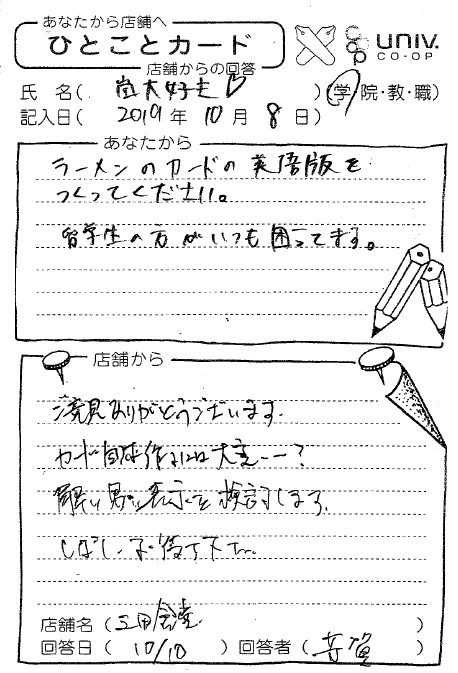 あなたから店舗へ
ひとことカード
店舗からの回答
UNIV.
CO-OP
氏 名( 嵐大好き♡ )(学・院・教・職)
記入日( 2019 年 10 月 8 日)
あなたから
ラーメンのカードの英語版を
つくってください。
留学生の方がいつも困ってます。
店舗から
ご意見ありがとうございます。
カード自体作るには大変ーー?
解り易い表示を検討します。
しばしお待ち下さい
店舗名( 三田食堂 )
回答日( 10/10 )回答者( )